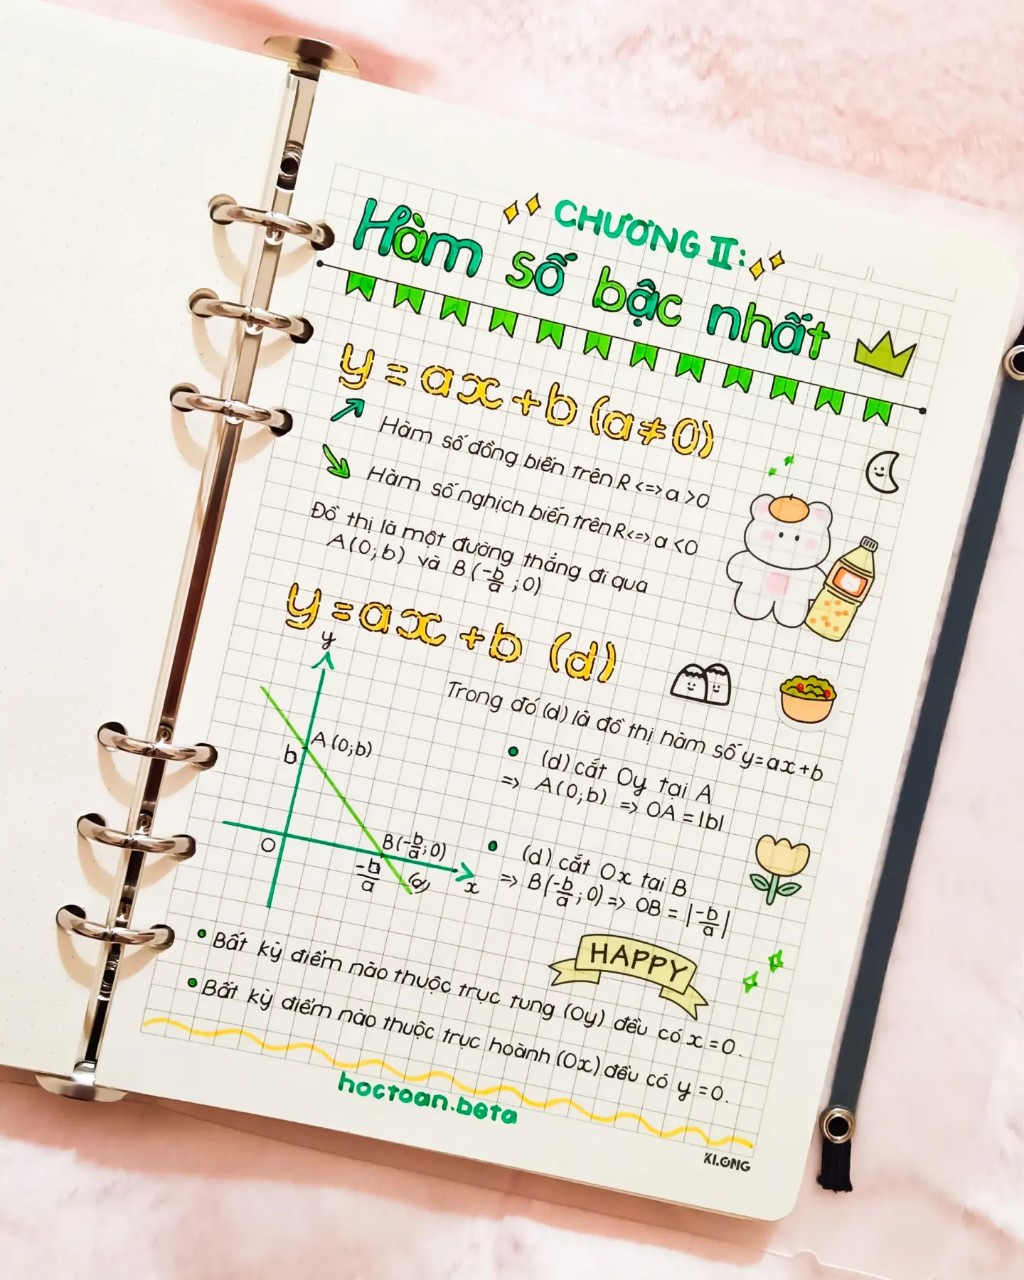 CHƯƠNG II:
Hàm số bậc nhất
y = ax + b (a ≠ 0)
Hàm số đồng biến trên R <=> a >0
Hàm số nghịch biến trên R <=> a <0
Đồ thị là một đường thẳng đi qua
A(0;b) và B(-b/a ; 0)
y = ax + b (d)
Trong đó (d) là đồ thị hàm số y=ax+b
y
A(0;b)
b
O
B(-b/a; 0)
-b/a
(d)
x
• (d) cắt Oy tại A
=> A(0;b) => OA = |b|
• (d) cắt Ox tại B
=> B(-b/a ; 0) => OB = |-b/a|
HAPPY
• Bất kỳ điểm nào thuộc trục tung (Oy) đều có x = 0.
• Bất kỳ điểm nào thuộc trục hoành (Ox) đều có y = 0.
hoctoan.beta
XI.ONG